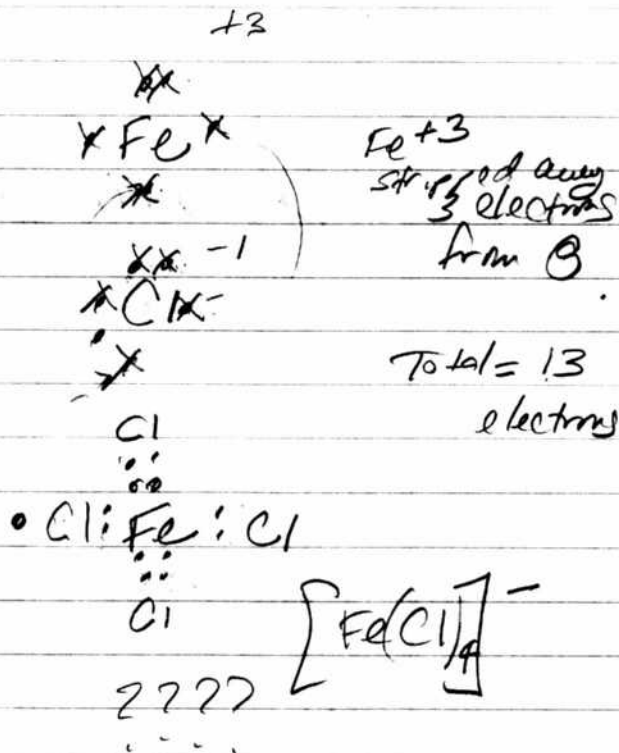 +3
xx
x Fe x
x
Fe+3
stripped away
3 electrons
from 8.
xx -1
x Clx-
x
Total = 13
electrons
Cl
Cl : Fe : Cl
Cl
[Fe(Cl)4]-
????